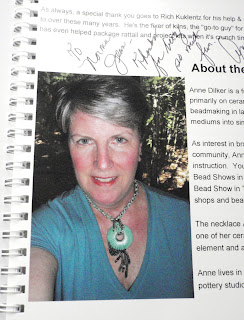 As always, a special thank you goes to Rich Kuklentz for his help &
to over these many years. He's the fixer of kilns, the "go-to guy" for
has even helped package rattail and project kits when it's crunch tim
To
About the
Anne Dilker is a
primarily on ceram
beadmaking in la
mediums into sin
As interest in bro
community, Ann
instruction. You
Bead Shows in
Bead Show in
shops and bea
The necklace
one of her cera
element and a
Anne lives in
pottery studio